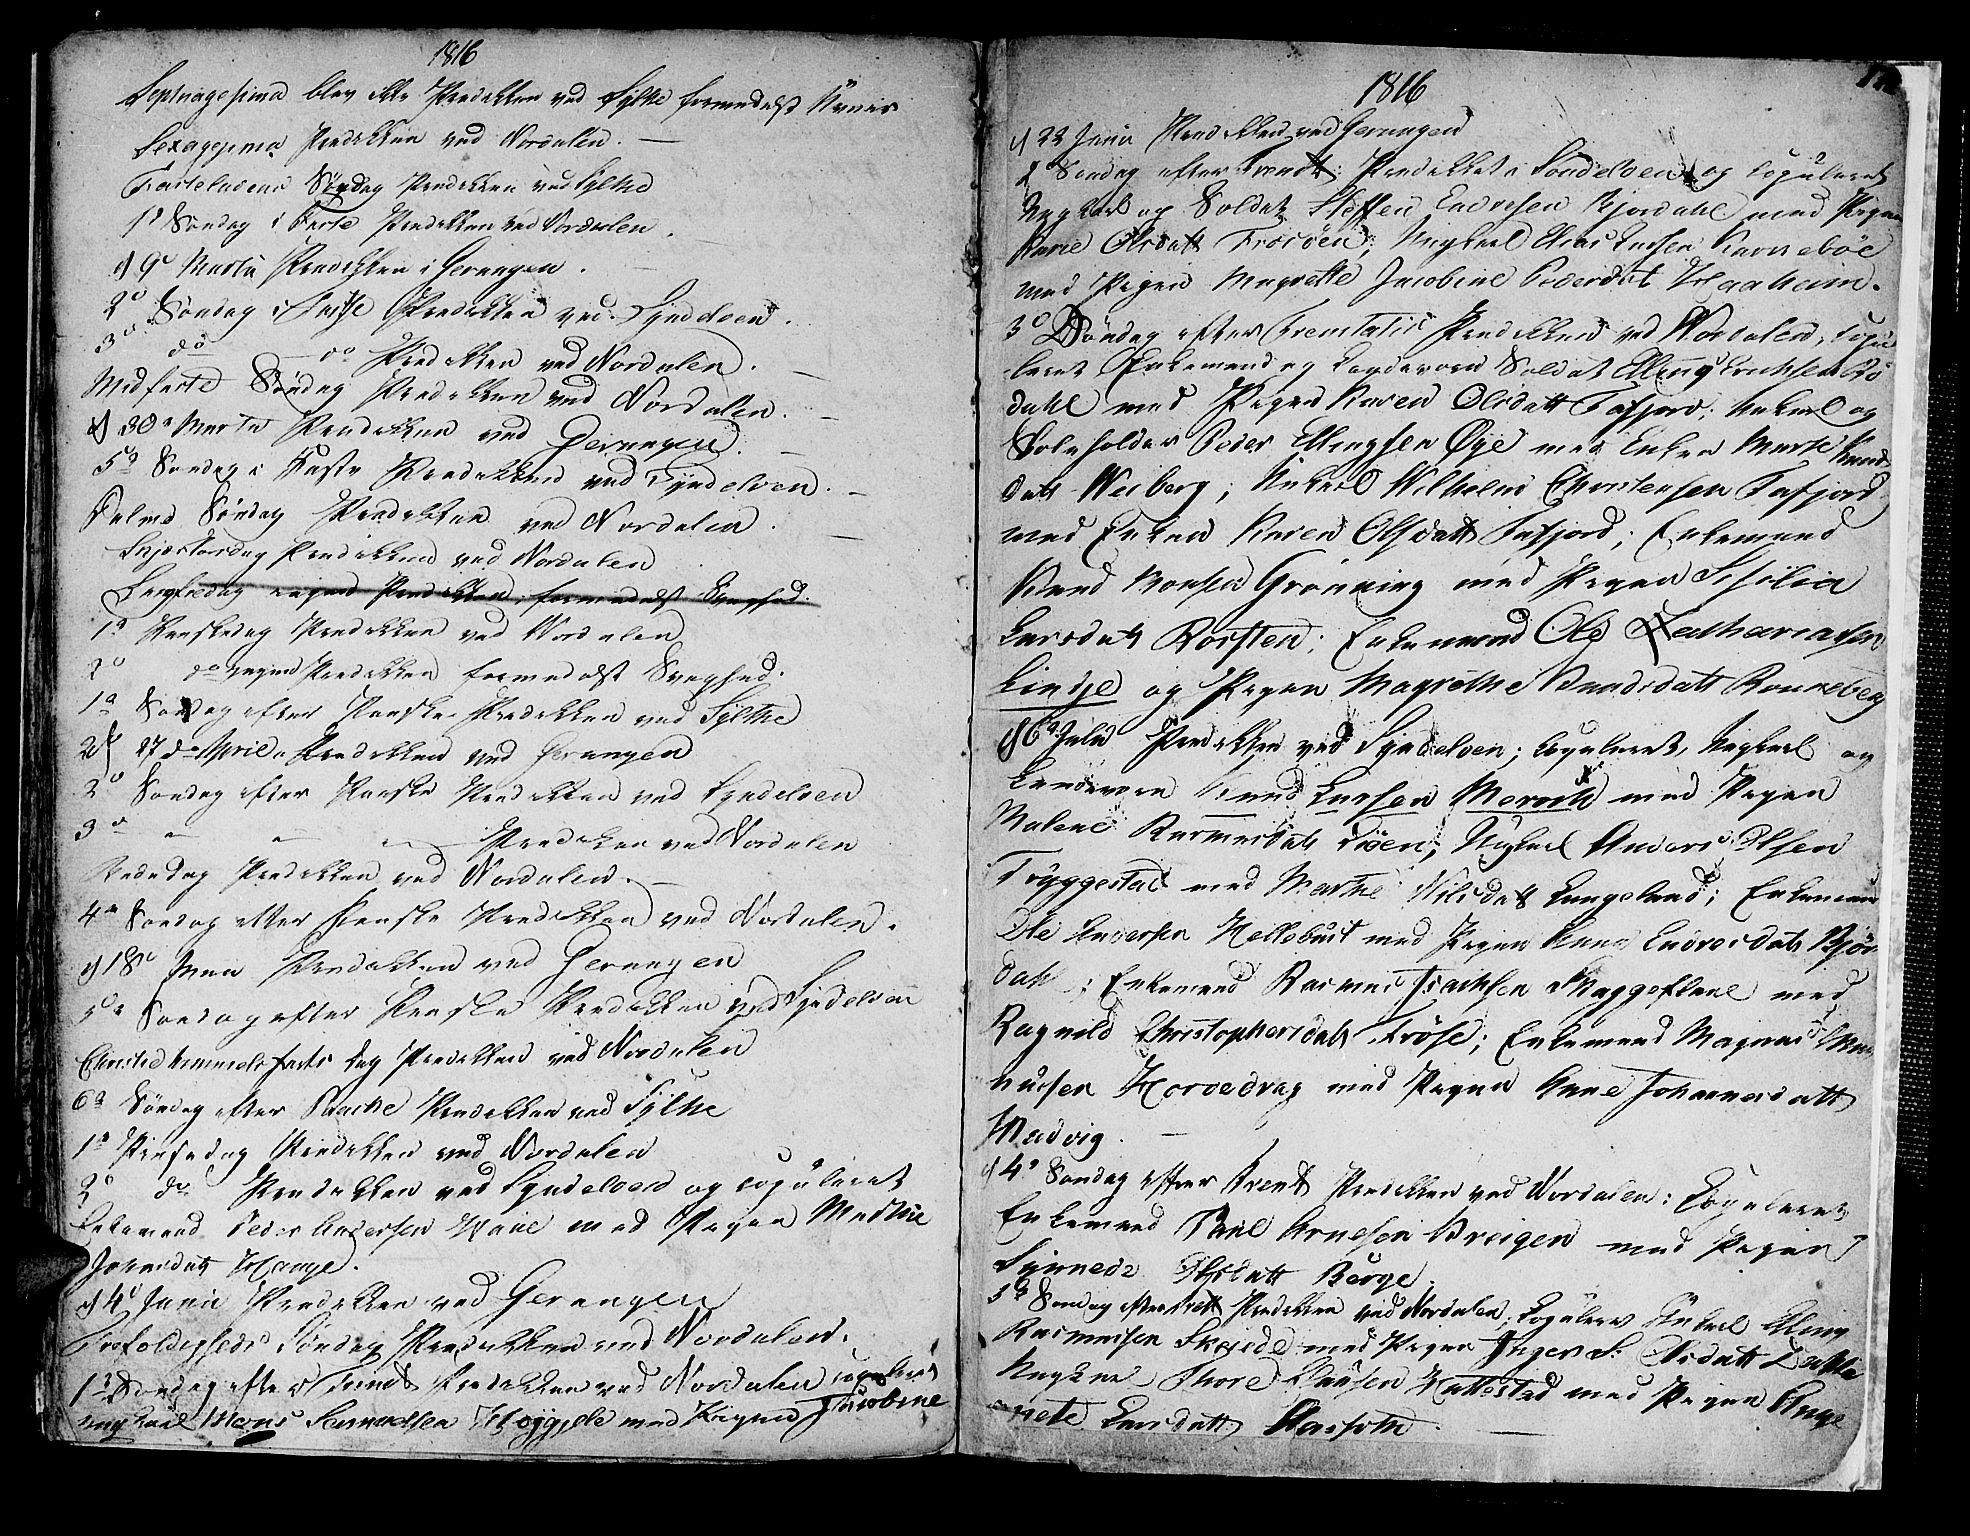 1816
Septuagesima blev ikke Prædikken ved Sylte formedelst Uveir
Sexagesima Prædikken ved Nordalen. —
Fastelavens Søndag Prædikken ved Sylte
1ste Søndag i Faste Prædikken ved Nordalen.
d 9de Martii Prædikken i Gerangen.
2den Søndag i Faste Prædikken ved Syndelven.
3die do — do Prædikken ved Nordalen. —
Midfaste Søndag Prædikken ved Nordalen. —
d 30 Martii Prædikken ved Gerangen. —
5te Søndag i Faste Prædikken ved Syndelven. —
Palme Søndag Prædikken ved Nordalen. —
Skjærtorsdag Prædikken ved Nordalen
Langfredag ingen Prædikken formedelst Svaghed.
1ste Paaskedag Prædikken ved Nordalen
2den do ingen Prædikken formedelst Svaghed.
1ste Søndag efter Paaske Prædikken ved Sylte
27de April Prædikken ved Gerangen
2den Søndag efter Paaske Prædikken ved Syndelven
3die — — — Prædikken ved Nordalen
Bededag Prædikken ved Nordalen. —
4de Søndag efter Paaske Prædikken ved Nordalen.
d 18de Maii Prædikken ved Gerangen
5te Søndag efter Paaske Prædikken ved Syndelven
Christi Himmelfarts Dag Prædikken ved Nordalen
6te Søndag efter Paaske Prædikken ved Sylte
1ste Pinsedag Prædikken ved Nordalen
2den do Prædikken ved Syndelven og copuleret
Enkemand Peder Andersen Hove med Pigen Marthe
Jonsdatt Hauge.
d 4de Junii Prædikken ved Gerangen
Trefoldigheds Søndag Prædikken ved Nordalen.
1ste Søndag efter Trinit Prædikken ved Nordalen copuleret
ungkarl Hans Hoggjele med Pigen Jacobine
1816
d 22 Junii Prædikken ved Gerangen
2 Søndag efter Trinit: Prædikket i Søndelven og copuleret
Ungkarl og Soldat Steffen Endresen Bjordahl med Pigen
Karie Olsdatt Fræsøen; Ungkarl Elias Larsen Ravnebøe
med Pigen Magrette Jacobine Pedersdatt Haaheim.
3die Søndag efter Trinitatis Prædikken ved Nordalen, copu
leret Enkemand og Landeværn Soldat Elling Knudsen Rø
dahl med Pigen Karen Olsdatt Tafjord; Unkarl og
Selvholder Peder Ellingsen Øye med Enken Marte Knuds
datt Weiberg; Unkarl Wilhelm Christensen Tafjord
med Enken Karen Olsdatt Tafjord; Enkemand
Knud Monsen Grønning med Pigen Sisilia
Larsdatt Korsten; Enkemand Ole Zachariasen
Linge og Pigen Magrethe Knudsdatt Ronneberg
d 6te Julii Prædikken ved Syndelven; copuleret Ungkarl og
Landeværn Knud Larsen Merock med Pigen
Malene Rasmusdatt Siøen; Ungkarl Anders Olsen
Tryggestad med Marthe Nilsdatt Langeland; Enkemand
Ole Andersen Hellebust med Pigen Anna Endresdatt Bjør
dahl; Enkemand Rasmus Isachsen Skaggeflaae med
Ragnild Christophersdatt Frøse; Enkemand Magnus
nussen Horvedrag med Pigen Anne Johannesdatt
Madvig. —
d 4de Søndag efter Trinit Prædikken ved Nordalen: Copuleret
Enkemand Paul Arnesen Breigen med Pigen
Synneve Olsdatt Berge.
5te Søndag efter Trinit Prædikken ved Nordalen, Copuleret Unkarl Elling
Rasmussen Skejede med Pigen Inger S. Olsdatt Dahle
Ungkarl Thore Hattestad med Pigen Ange
nete Larsdatt